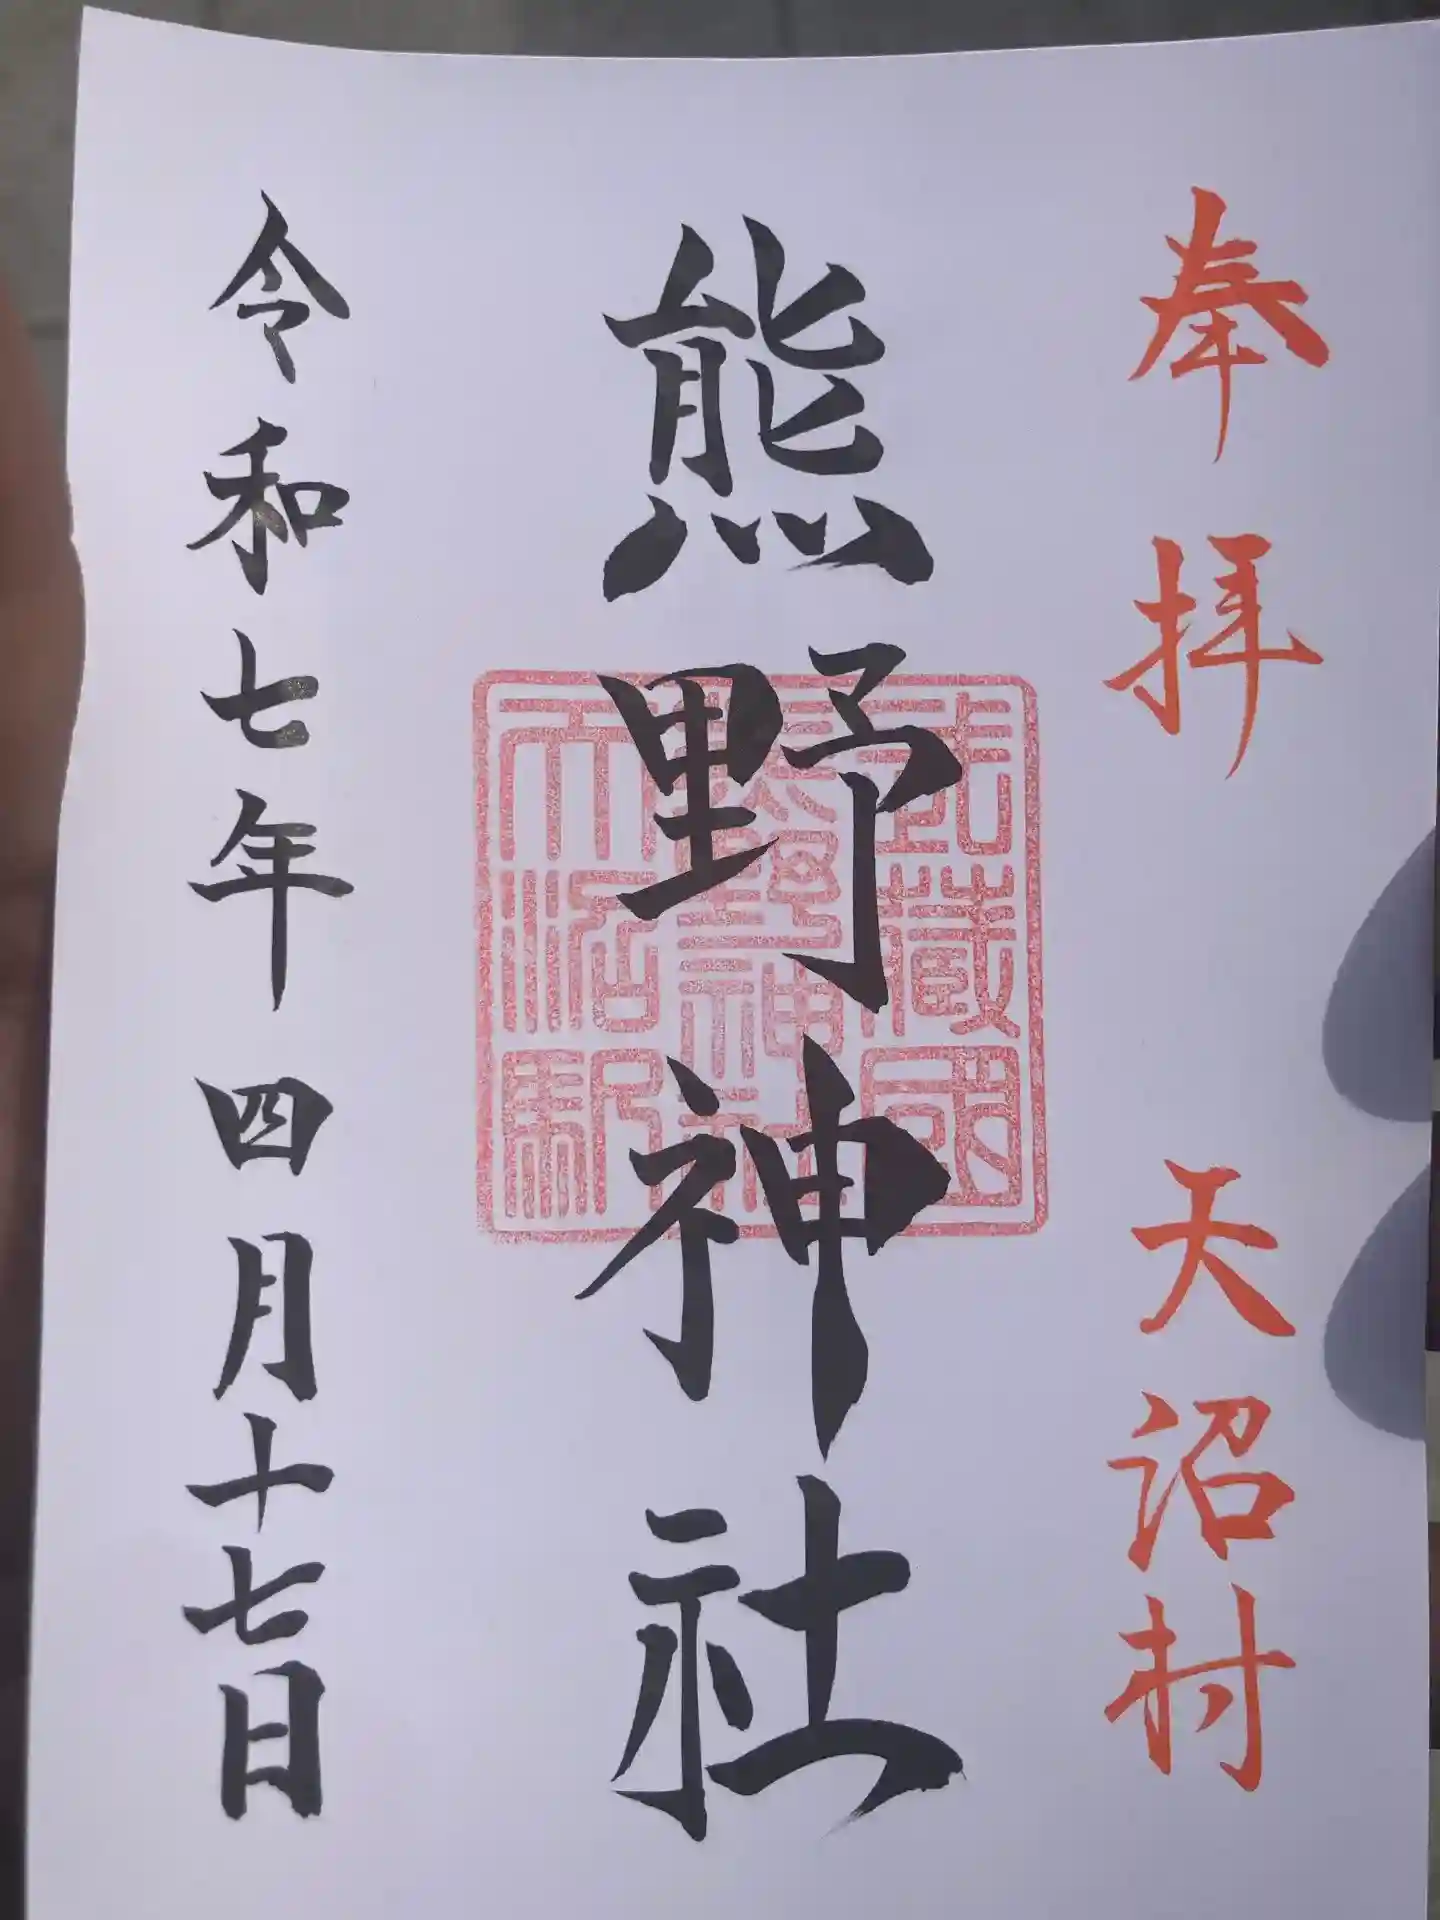 奉拝 天沼村
熊野神社
令和七年四月十七日
武藏國